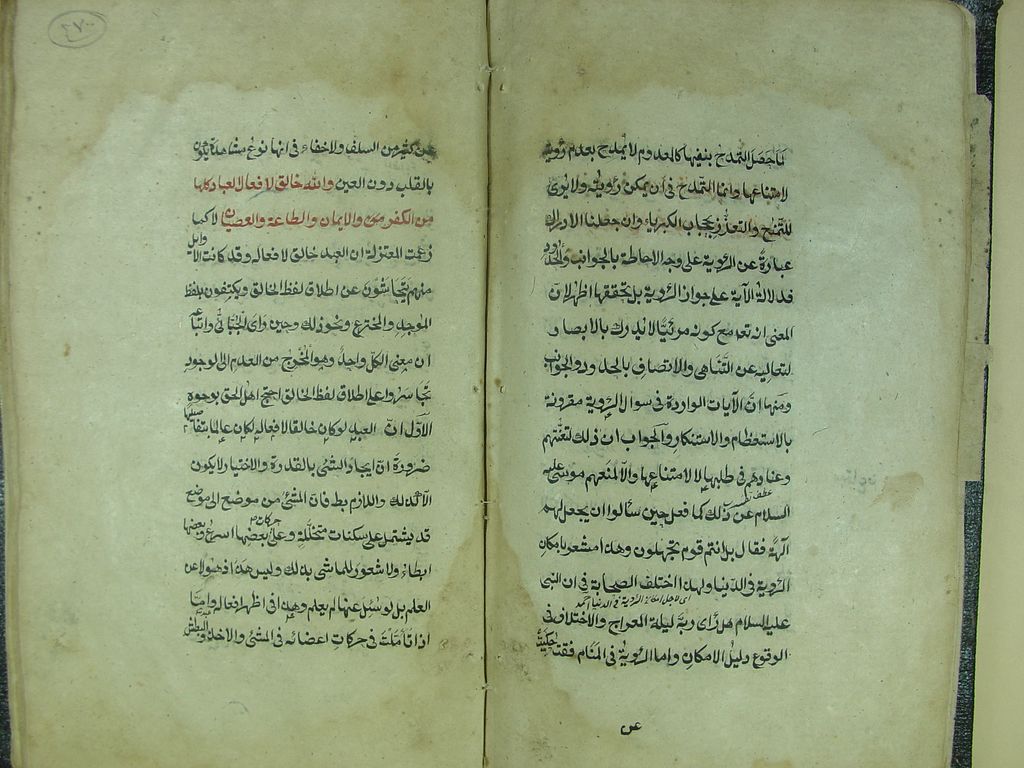 لما حصل التمدح بنفيها كالمعدوم لا يمدح بعدم رؤيته
لامتناعها وانما التمدح في ان يمكن رؤيته ولا يرى
للتمنع والتعذر بحجاب الكبرياء وان جعلنا الادراك
عبارة عن الرؤية على وجه الاحاطة بالجوانب والحدود
فدلالة الآية على جواز الرؤية بل تحققها اظهر لان
المعنى انه تعه مع كونه مرئيا لا يدرك بالابصار
لتعاليه عن التناهى والاتصاف بالحدود والجوانب
ومنها ان الآيات الواردة في سوال الرؤية مقرونة
بالاستعظام والاستنكار والجواب ان ذلك لتعنتهم
وعنادهم في طلبها لا لامتناعها والا لمنعهم موسى عليه
السلام عن ذلك كما فعل حين سألوا ان يجعل لهم
آلهة فقال بل انتم قوم تجهلون وهذا مشعر بامكان
الرؤية في الدنيا ولهذا اختلف الصحابة في ان النبى
اى لاجل امكان الرؤية في الدنيا
عليه السلام هل رأى ربه ليلة المعراج والاختلاف في
الوقوع دليل الامكان واما الرؤية في المنام فقد حكيت
عن
٢٧٠
عن كثير من السلف ولا خفاء في انها نوع مشاهدة يكون
بالقلب دون العين والله خالق لافعال العباد كلها
من الكفر والايمان والطاعة والعصيان لا كما
زعمت المعتزلة ان العبد خالق لافعاله وقد كانت الاوايل
منهم يتحاشون عن اطلاق لفظ الخالق ويكتفون بلفظ
الموجد والمخترع ونحو ذلك وحين رأى الجبائى واتباعه
ان معنى الكل واحد وهو المخرج من العدم الى الوجود
تجاسروا على اطلاق لفظ الخالق احتج اهل الحق بوجوه
الاول ان العبد لو كان خالقا لافعاله لكان عالما بتفاصيلها
ضرورة ان ايجاد الشئ بالقدرة والاختيار لا يكون
الا كذلك واللازم بط فان المشى من موضع الى موضع
قد يشتمل على سكنات متخللة وعلى حركات بعضها اسرع وبعضها
ابطاء ولا شعور للماشى بذلك وليس هذا ذهولا عن
العلم بل لو سئل عنها لم يعلم وهذا في اظهر افعاله واما
اذا تأملت في حركات اعضائه في المشى والاخذ والبطش